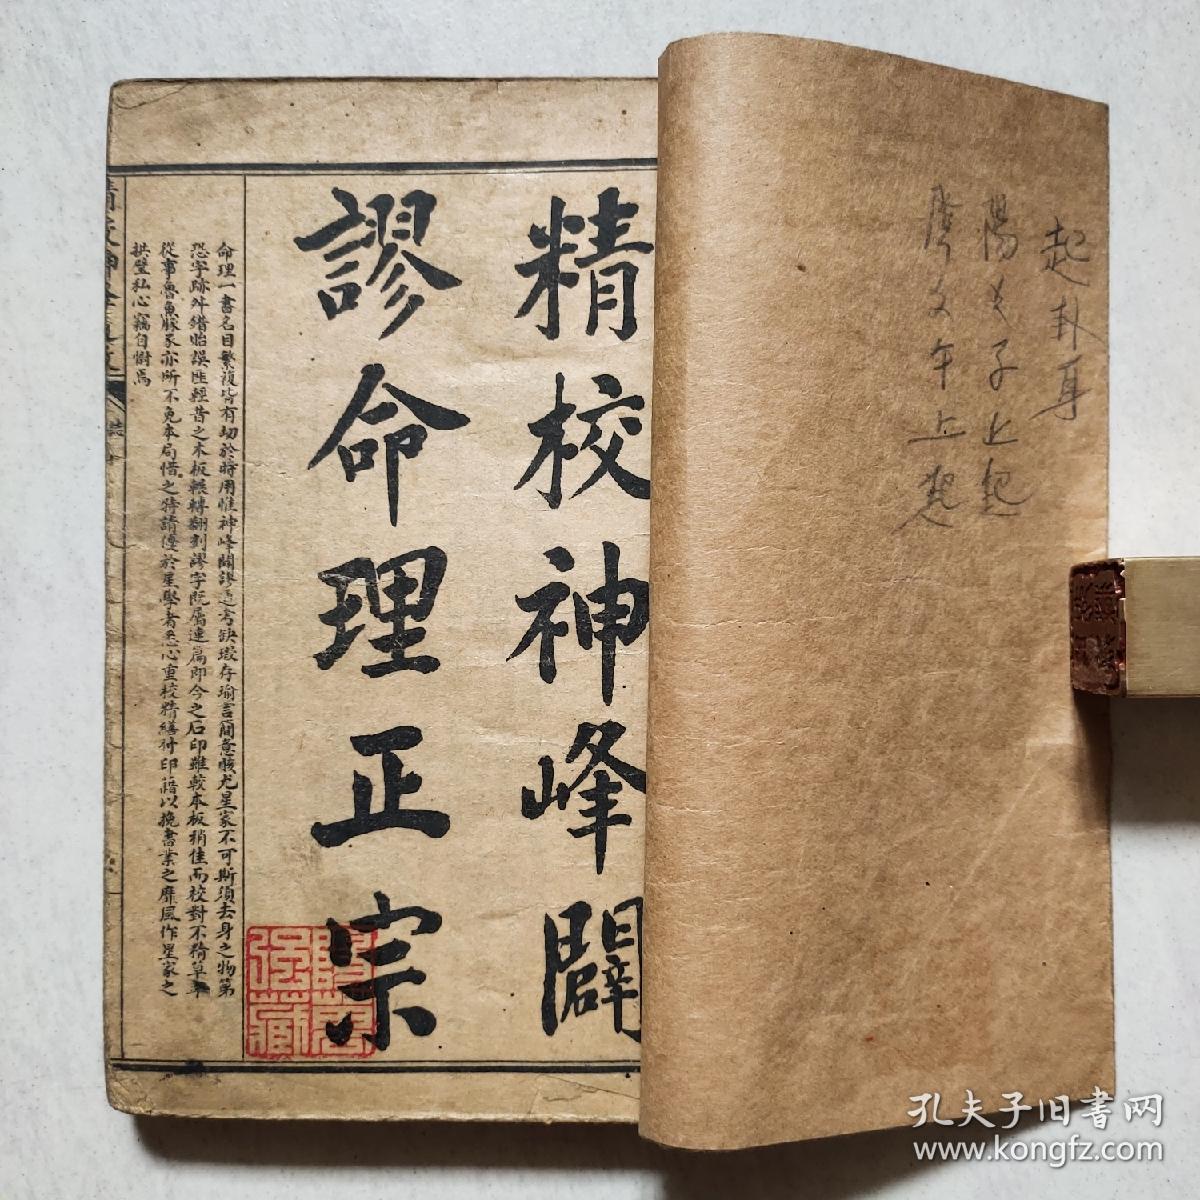 起卦身
陽爻子上起
陰爻午上起
精校神峰闢
謬命理正宗
命理一書名目繁複皆有切於時用惟神峰闢謬
存瑜言簡意賅尤星家不可斯須去身之物第
恐字跡舛錯貽誤匪輕昔之木板輾轉翻刻謬字既屬連篇即今之石印雖較木板稍佳而校對不精草率
從事魯魚豕亦所不免本局惜之特請優於星學者悉心重校精繕付印藉以挽書業之靡風作星家之
拱璧私心竊自慰焉
孔夫子旧书网
www.kongfz.com